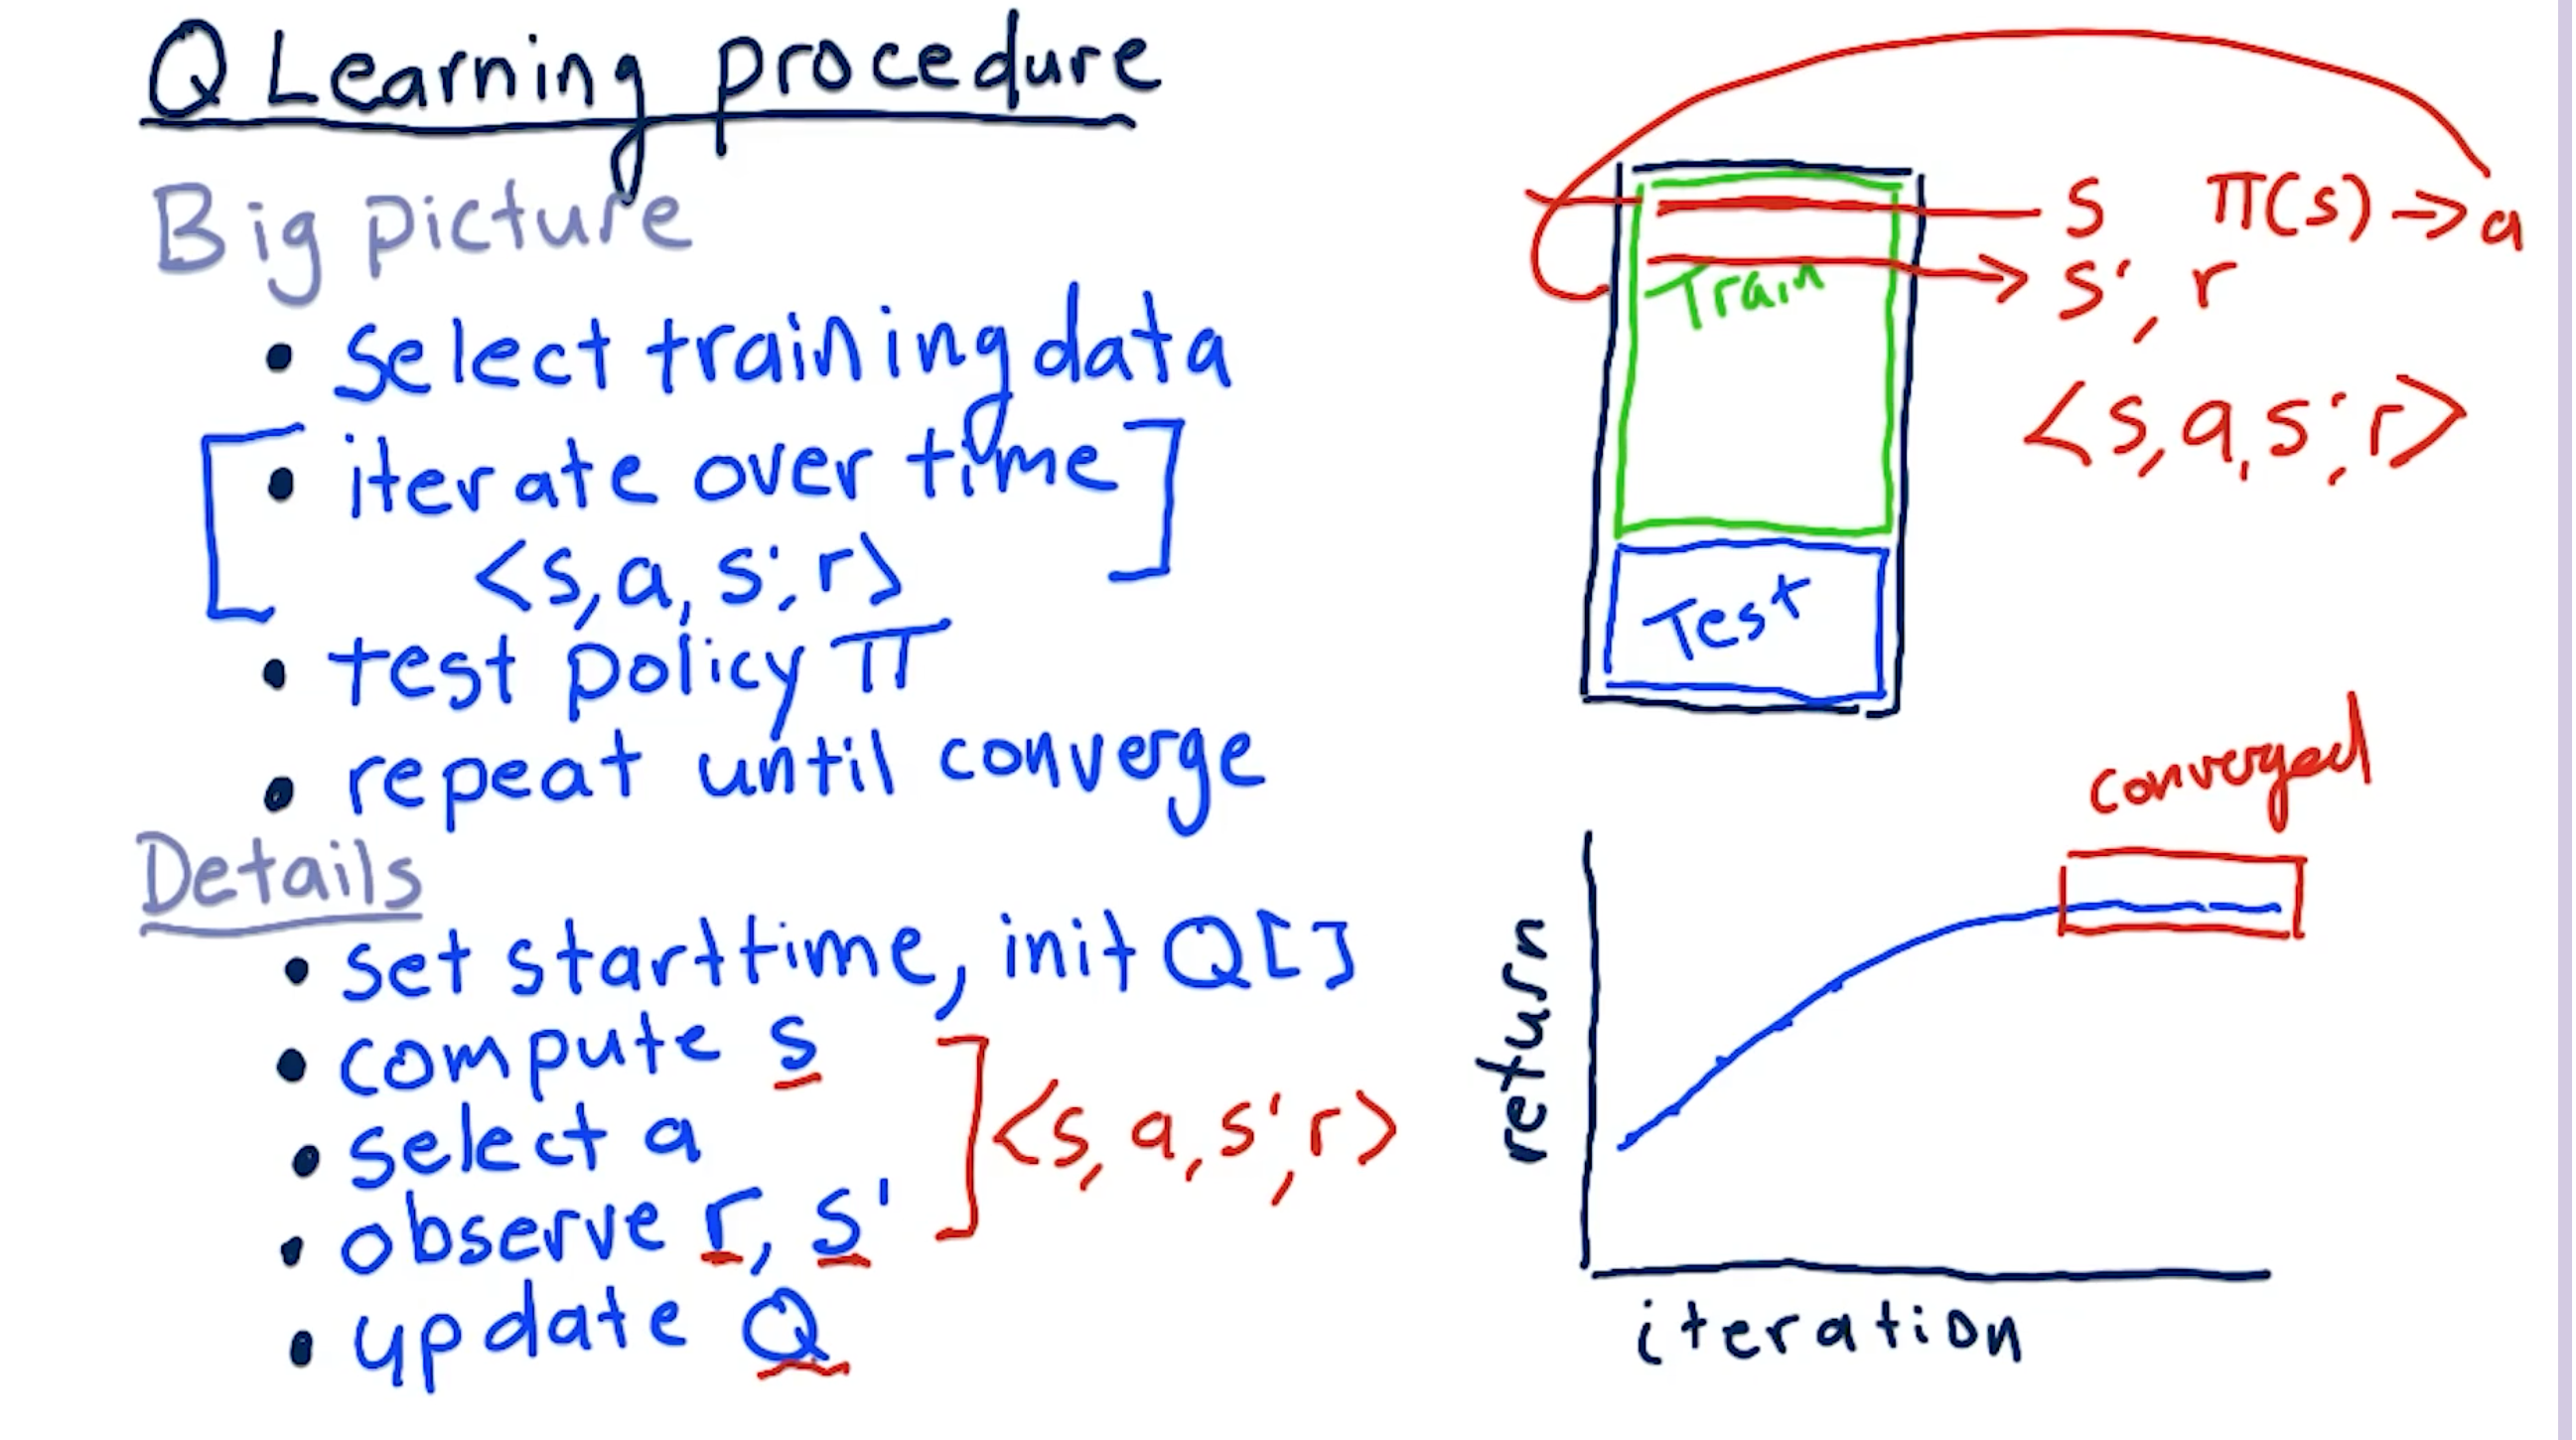 Q Learning procedure
Big picture
• select training data
• iterate over time
<s, a, s', r>
• test policy π
• repeat until converge
Details
• set starttime, init Q[]
• compute s
• select a
• observe r, s'
• update Q
<s, a, s', r>
s π(s) → a
s', r
Train
<s, a, s', r>
Test
converged
return
iteration